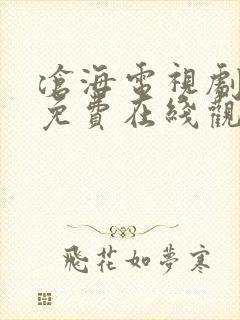 滄海電視劇
免費在綫觀
飛花如夢寒